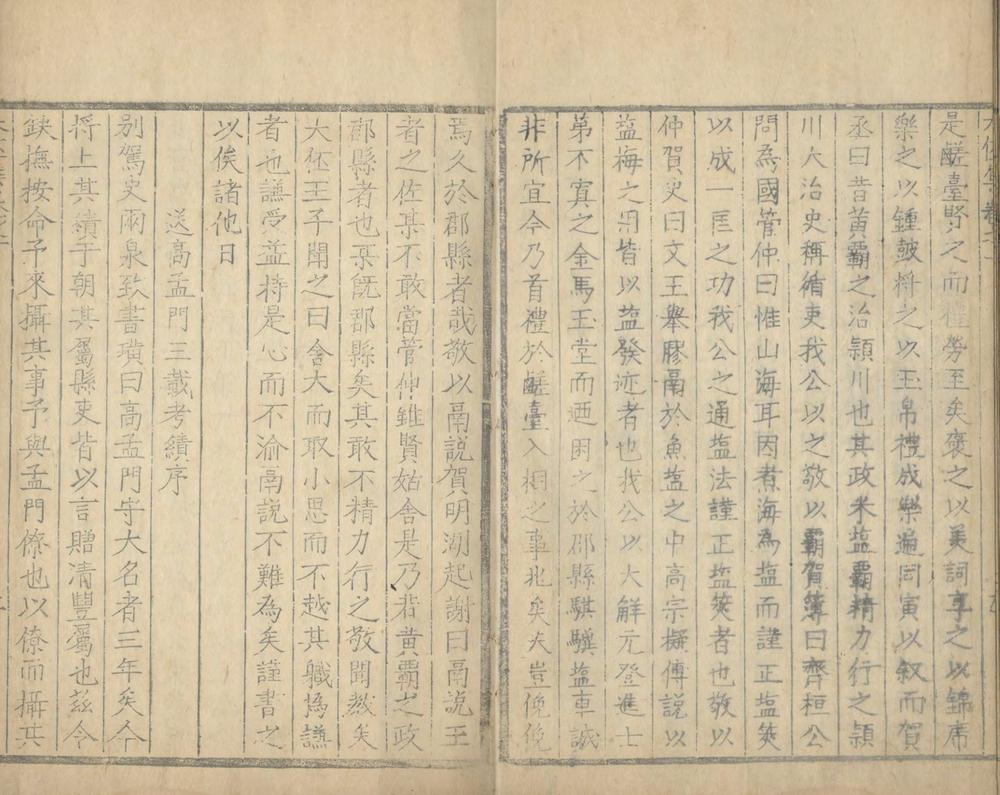 是鹺臺賢之而禮勞至矣褒之以美詞享之以錦席
樂之以鍾皷將之以玉帛禮成樂遍同寅以叙而賀
丞曰昔黄霸之治頴川也其政米塩霸精力行之頴
川大治史稱循吏我公以之敬以霸賀簿曰齊桓公
問為國管仲曰惟山海耳因煮海為塩而謹正塩筴
以成一匡之功我公之通塩法謹正塩筴者也敬以
仲賀史曰文王舉膠鬲於魚塩之中高宗擬傅説以
塩梅之用皆以塩發迹者也我公以大解元登進士
第不寘之金馬玉堂而廼困之於郡縣騏驥塩車誠
非所宜今乃首禮於鹺臺入相之事兆矣夫豈俛俛
焉久於郡縣者哉敬以鬲説賀明湖起謝曰鬲説王
者之佐某不敢當管仲雖賢姑舍是乃若黄霸之政
郡縣者也某既郡縣矣其敢不精力行之敬聞教矣
大伾王子聞之曰舍大而取小思而不越其職撝謙
者也謙受益持是心而不渝鬲説不難為矣謹書之
以俟諸他日
送高孟門三載考績序
别駕史兩泉致書璜曰高孟門守大名者三年矣今
將上其績于朝其屬縣吏皆以言贈清豐屬也兹令
缺撫按命予來攝其事予與孟門僚也以僚而攝其